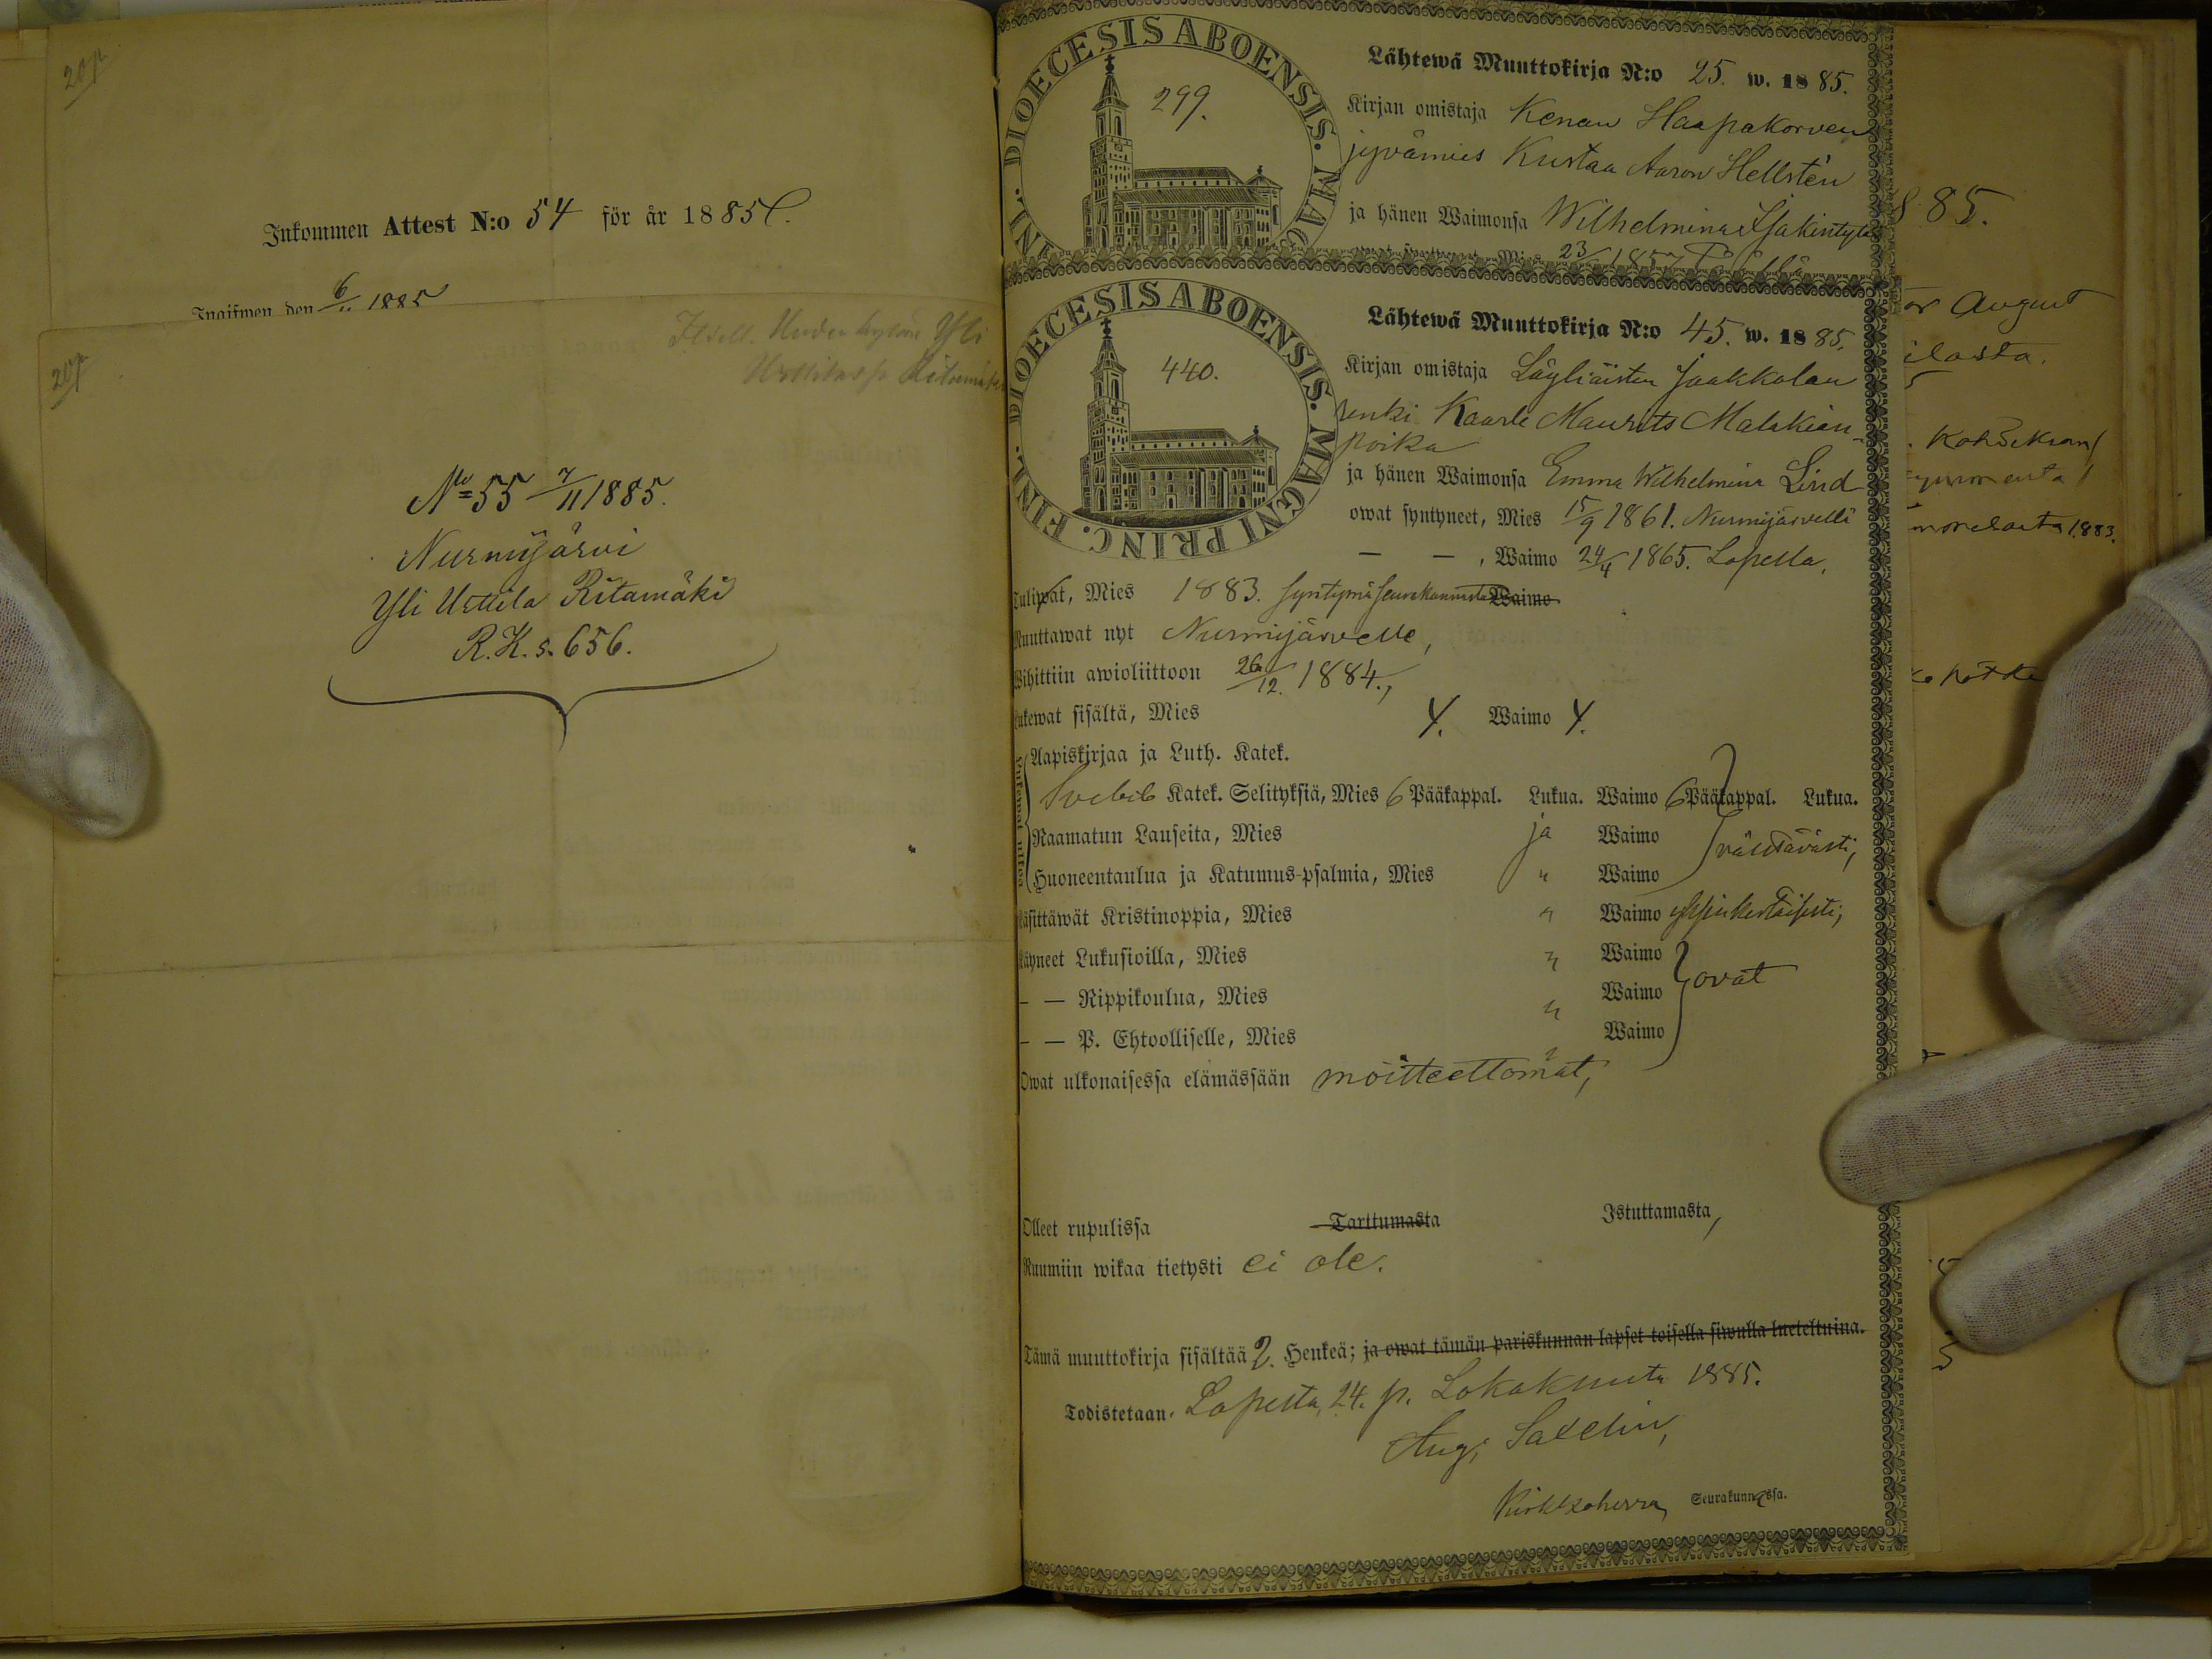 20p
Inkommen Attest N:o 54 för år 1885
Ingifwen den 6/11 1885
20p
Yli
No 55 7/11 1885.
Nurmijärvi
Yli Uttila Ritamäki
R.K. s. 656.
DIOECESIS ABOENSIS. MAG
FIN.
299.
Lähtewä Muuttokirja N:o 25. w. 1885.
Kirjan omistaja Kenan Haapakorven
jyvämies Kustaa Aaron Hellstén
ja hänen Waimonsa Wilhelmina
23/ 185
DIOECESIS ABOENSIS. MAGNI PRINC. FINL.
440.
Lähtewä Muuttokirja N:o 45. w. 1885.
Kirjan omistaja Läyliäisten Jaakkolan
renki Kaarle Maurits Malakian-
poika
ja hänen Waimonsa Emma Wilhelmina Lind
owat syntyneet, Mies 15/9 1861. Nurmijärvellä
— — , Waimo 24/4 1865. Lopella.
Tuliwat, Mies 1883. syntymäseurakunnasta Waimo
Muuttawat nyt Nurmijärvelle,
Wihittiin awioliittoon 26/12. 1884.,
Lukewat sisältä, Mies Y. Waimo Y.
Lukewat ulkoa
Aapiskirjaa ja Luth. Katek.
Svebil. Katek. Selityksiä, Mies 6 Pääkappal. Lukua. Waimo 6 Pääkappal. Lukua.
Raamatun Lauseita, Mies ja Waimo
välttävästi,
Huoneentaulua ja Katumus-psalmia, Mies " Waimo
Käsittäwät Kristinoppia, Mies " Waimo yksinkertaisesti;
Käyneet Lukusioilla, Mies " Waimo
ovat
— — Rippikoulua, Mies " Waimo
— — P. Ehtoolliselle, Mies " Waimo
Owat ulkonaisessa elämässään moitteettomat,
Olleet rupulissa Tarttumasta Istuttamasta,
Ruumiin wikaa tietysti ei ole.
Tämä muuttokirja sisältää 2. Henkeä; ja owat tämän pariskunnan lapset toisella siwulla lueteltuina.
Todistetaan. Lopella, 24. p. Lokakuuta 1885.
Aug. Saxelin,
Kirkkoherra Seurakunnassa.
85.
August
Kokoukseen
1883.